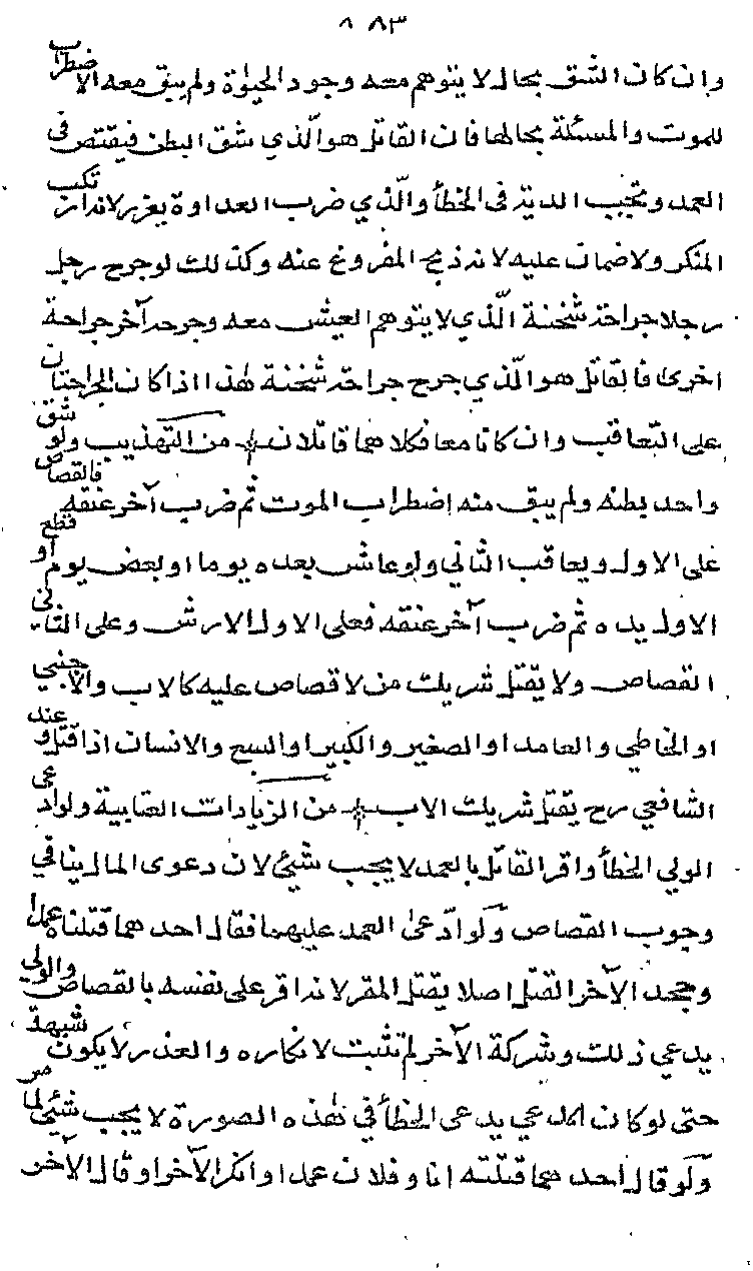 ٨٨٣
وان كان الشق بحال لا يتوهم معه وجود الحيوٰة ولم يبق معه الا اضطراب
للموت والمسئلة بحالها فان القاتل هو الّذي شق البطن فيقتص في
العمد وتجب الدية فى الخطأ والّذي ضرب العداوة يعزر لانه ارتكب
المنكر ولا ضمان عليه لانه ذبح المفروغ عنه وكذلك لو جرح رجل
رجلا جراحة شخنة الّذي لا يتوهم العيش معه وجرحه آخر جراحة
اخرىٰ فالقاتل هو الّذي جرح جراحة شخنة هٰذا اذا كان الجراحتان
على التّعاقب وان كانا معا فكلاهما قاتلان من التهذيب ولو شق
واحد بطنه ولم يبق منه إضطراب الموت ثم ضرب آخر عنقه فالقصاص
على الاول ويعاقب الثاني ولو عاش بعده يوما او بعض يوم او قطع
الاول يده ثم ضرب آخر عنقه فعلى الاول الارش وعلى الثاني
القصاص ولا يقتل شريك من لا قصاص عليه كالاب والاجنبي
او الخاطي والعامد او الصغير والكبير او السبع والانسان اذا قتل وعند
الشافعي رح يقتل شريك الاب من الزيادات العتابية ولو ادعى
الولي الخطأ واقر القاتل بالعمد لا يجب شيئ لان دعوى المال ينافي
وجوب القصاص ولو ادّعىٰ العمد عليهما فقال احدهما قتلناه عمدا
وجحد الآخر القتل اصلا يقتل المقر لانه اقر على نفسه بالقصاص والولي
يدعي ذلك وشركة الآخر لم تثبت لانكاره والعذر لا يكون شبهة
حتى لو كان المدعي يدعى الخطأ في هٰذه الصورة لا يجب شيئ لما مر
ولو قال احدهما قتلته انا وفلان عمدا وانكر الآخر او قال الآخر